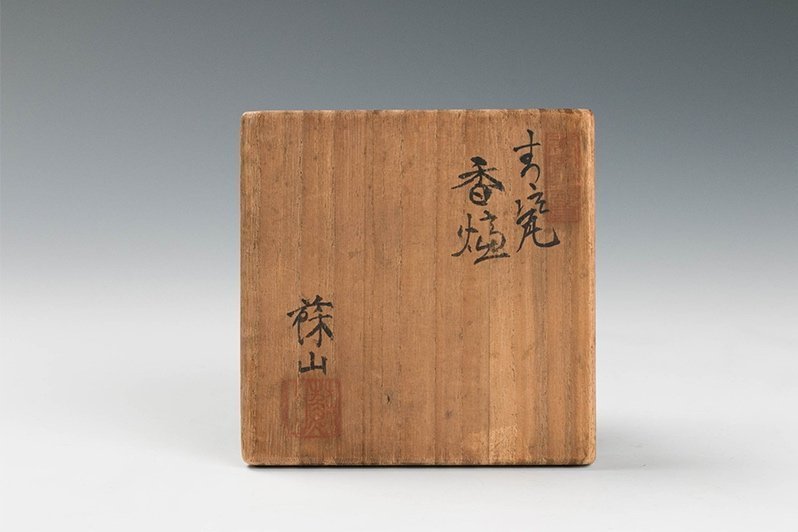 青瓷
香爐
篠山